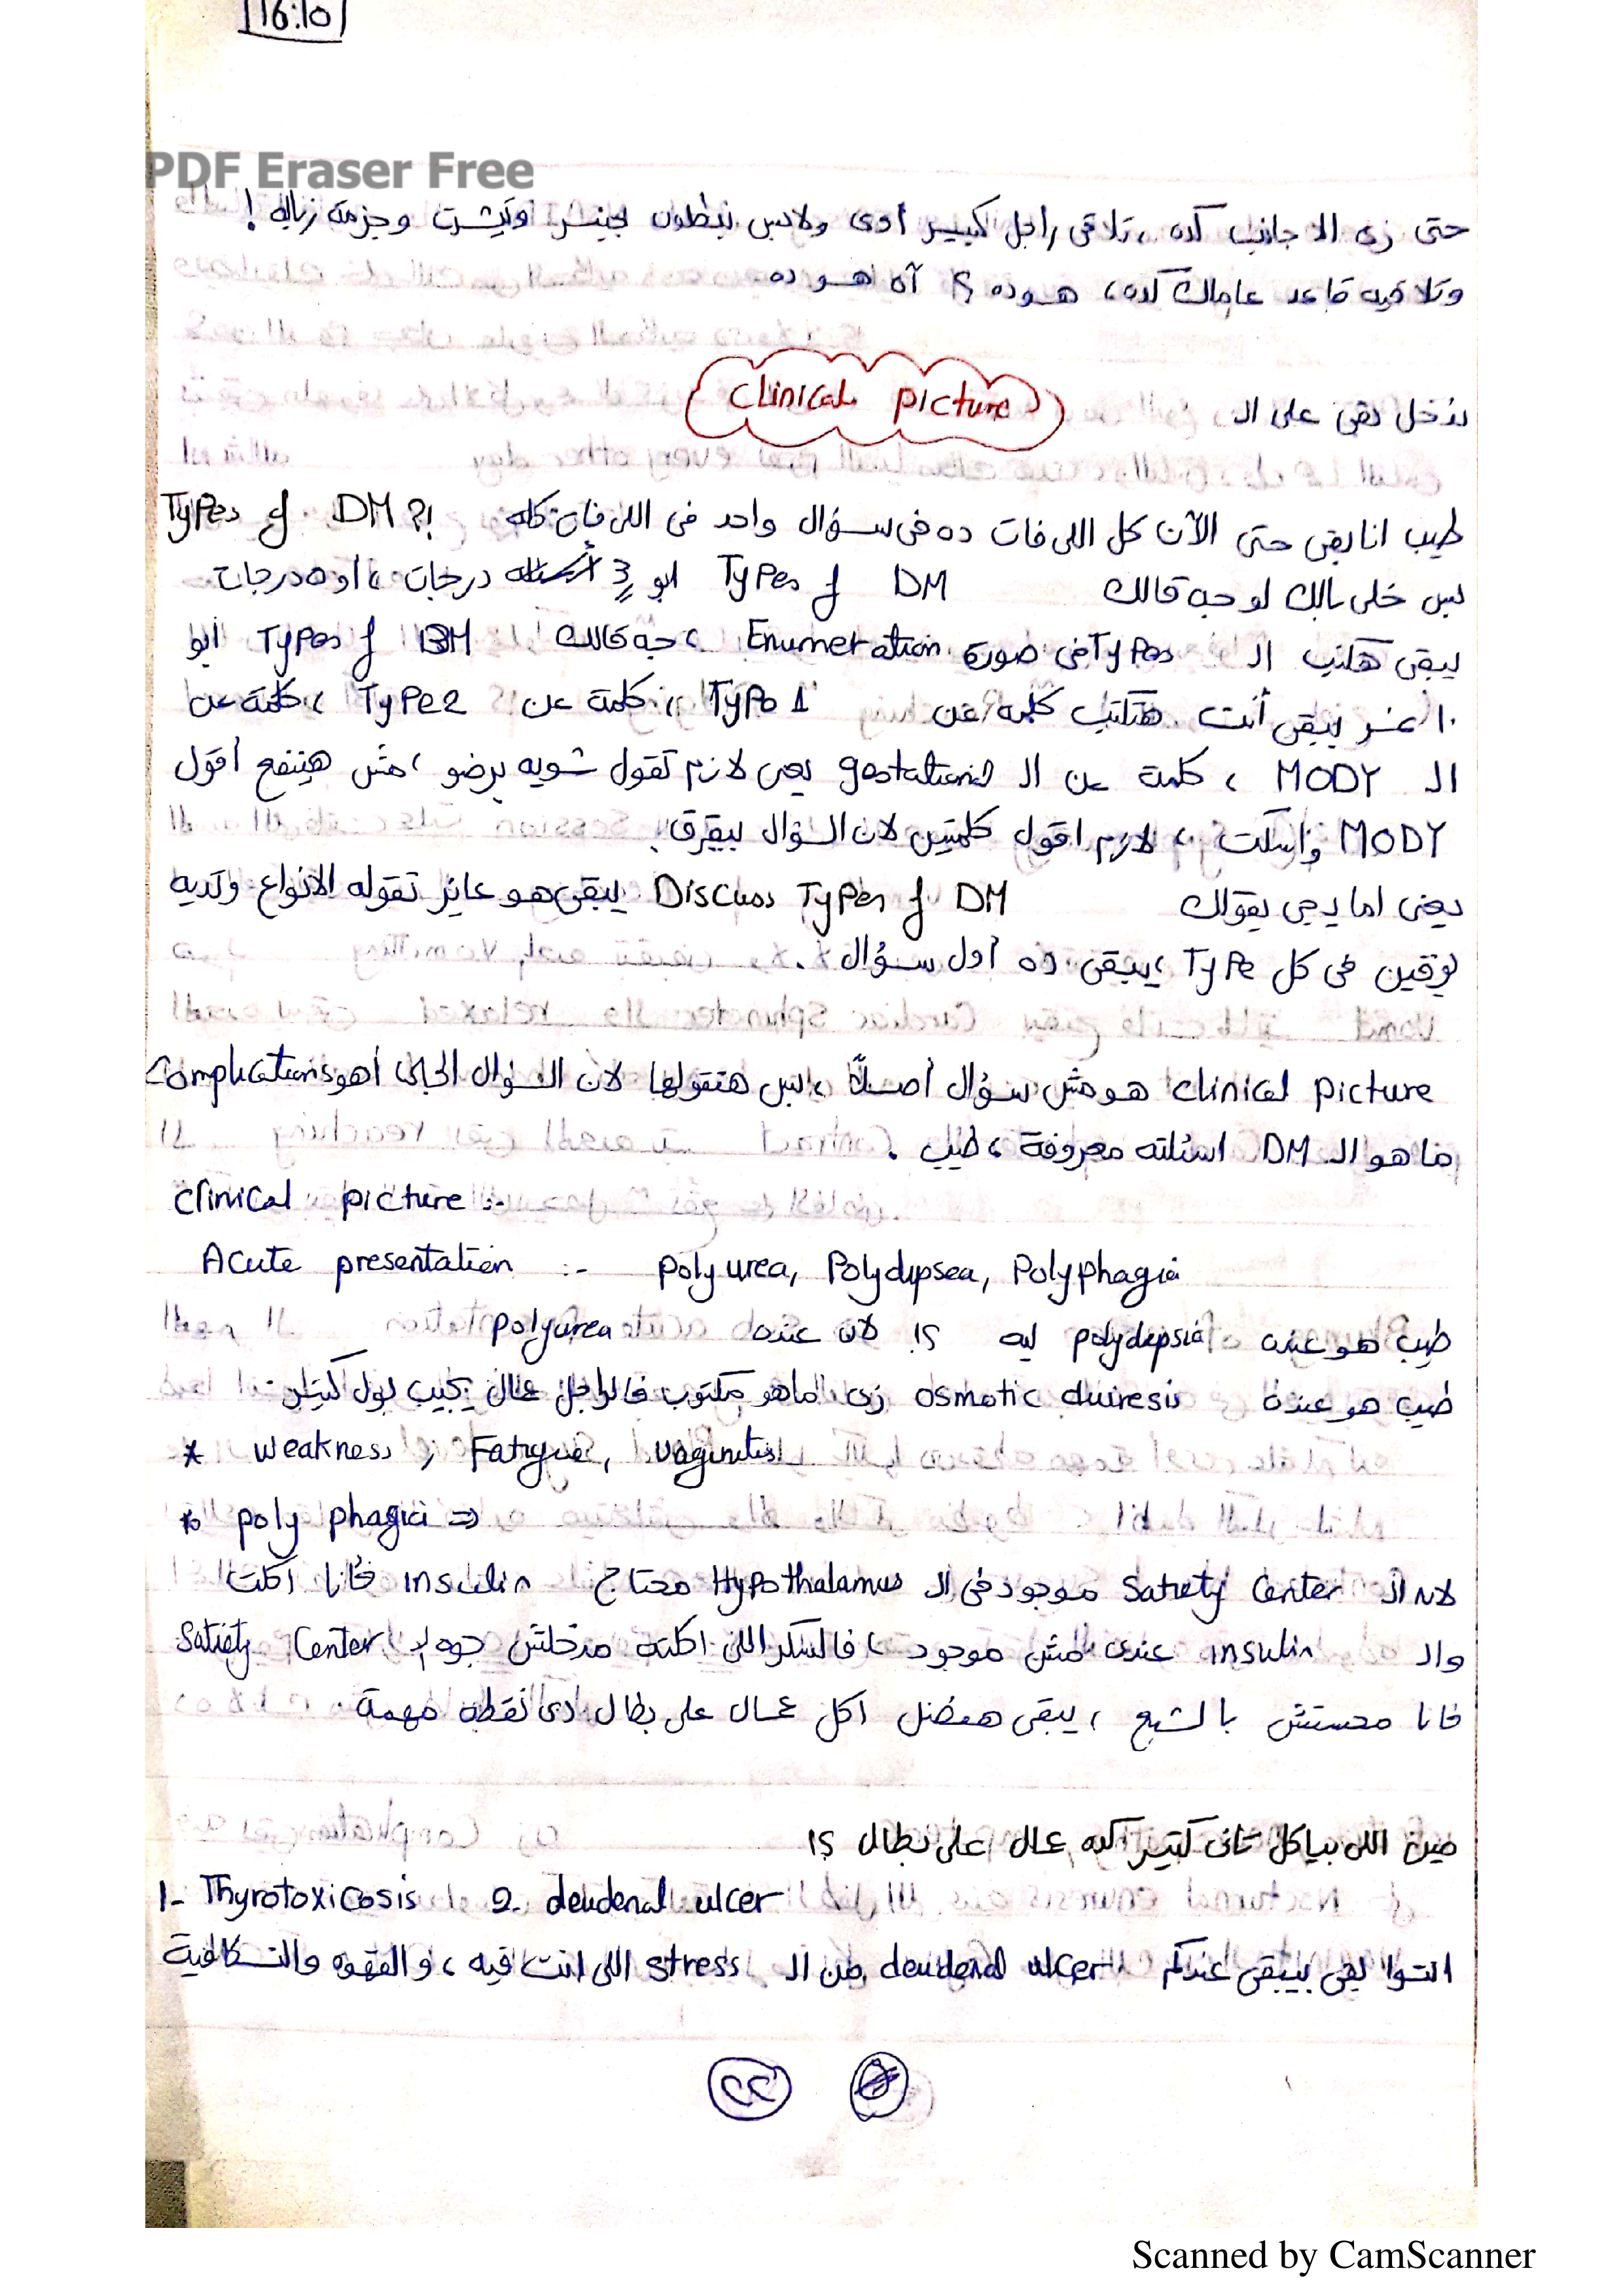 16:10
PDF Eraser Free
حتى زى الاجانب كده ، تلاقى راجل كبيير أوى ولابس بنطلون جينز وتيشرت وجزمة زباله !
وتلاقيه قاعد عاملك كده ، هو ده ؟ آه هو ده
ندخل بقى على الـ Clinical picture
طيب انا بقى حتى الآن كل اللى فات ده فى سؤال واحد فى اللى فات كله Types of DM ؟!
بس خلى بالك لو جه قالك Types of DM ابو 3 درجات ، او ٥ درجات
يبقى هكتب الـ Types فى صورة Enumeration ، جه قالك Types of DM أبو
١٠ يبقى أنت هتكتب كلمة عن Type 1 ، كلمة عن Type 2 ، كلمة عن
الـ MODY ، كلمة عن الـ gestational يعنى لازم تقول شويه برضو ، مش هينفع أقول
MODY واسكت ، لازم اقول كلمتين لان السؤال بيفرق
يعنى اما يجى يقولك Discuss Types of DM يبقى هو عايز تقوله الانواع وتديه
فى كل Type ، يبقى ده أول سؤال .
clinical picture هو مش سؤال أصلاً ، بس هنقولها لان السؤال الجاى أهو Complications
ما هو الـ DM اسئلته معروفة ، طيب .
Clinical picture :-
Acute presentation :- polyurea, Polydipsea, Polyphagia
طيب هو عنده polydepsia ليه ؟! لان عنده polyurea
طيب هو عنده osmotic duiresis زى ما هو مكتوب فالراجل عمال يجيب بول كتير
* weakness, Fatigue, vaginitis
* poly phagia ⇒
لان الـ Satiety Center موجود فى الـ Hypothalamus محتاج insulin فأنا اكلت
والـ insulin عندى مش موجود ، فالسكر اللى اكلته مدخلش جوه الـ Satiety Center
فانا محستش بالشبع ، يبقى هفضل اكل عمال على بطال دى نقطة مهمة
مين اللى بياكل تانى كتير كده عمال على بطال ؟!
1- Thyrotoxicosis 2- deudenal ulcer
انتوا بقى بيبقى عندكم deudenal ulcer من الـ stress اللى انت فيه ، والقهوه والنسكافية
Scanned by CamScanner